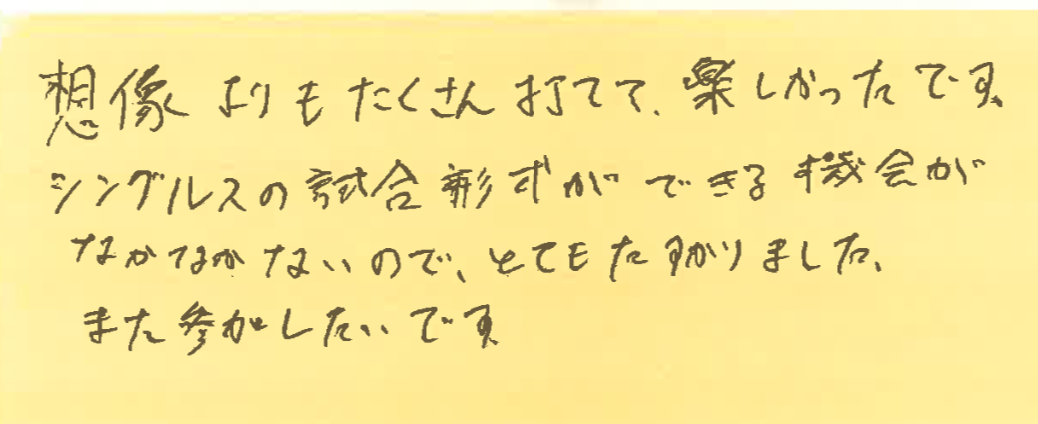 想像よりもたくさん打てて、楽しかったです。
シングルスの試合形式ができる機会が
なかなかないので、とてもたすかりました。
また参加したいです